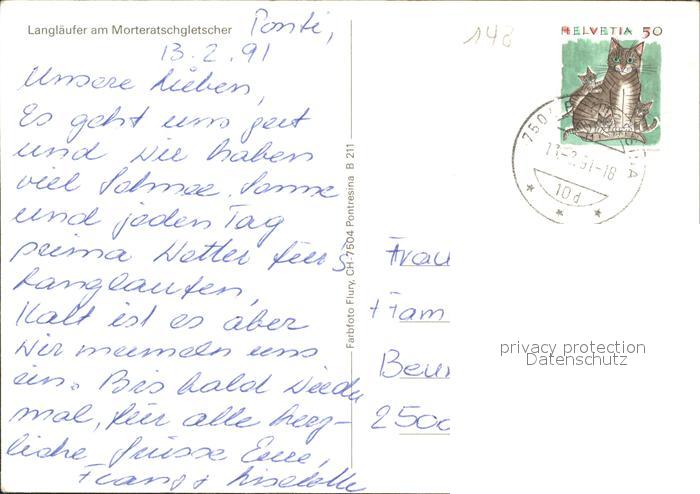 Langläufer am Morteratschgletscher
Ponti,
13.2.91
148
HELVETIA 50
Unsere Lieben,
Es geht uns gut
und wir haben
viel Schnee, Sonne
und jeden Tag
prima Wetter für's
Langlaufen,
Kalt ist es aber
wir mummeln uns
ein. Bis bald wieder
mal, für alle herz-
liche Grüsse Eure,
Franz + Liselotte
Farbfoto Flury, CH-7504 Pontresina B 211
7504
13-2.91-18
10d
Frau
Ham
2500
privacy protection
Datenschutz